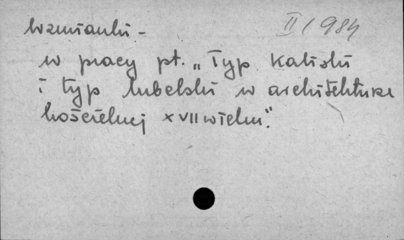 Wzmianki -
II/1984
w pracy pt. „Typ kaliski
i typ lubelski w architekturze
kościelnej XVII wieku".